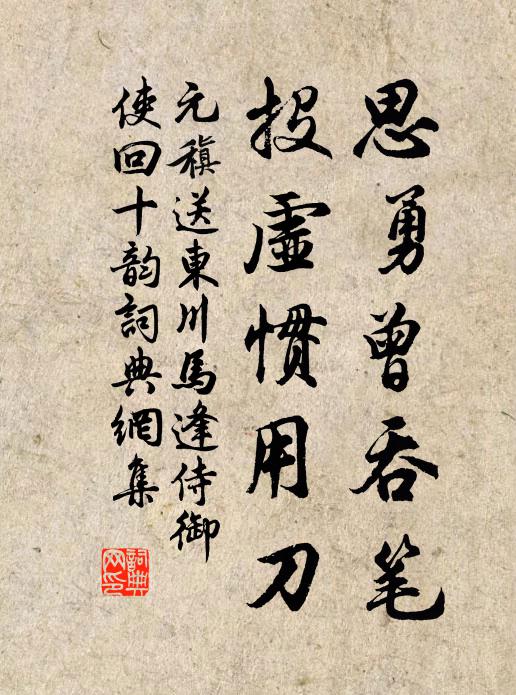 思勇曾吞笔
投虛慣用刀
元稹送東川馬逢侍御
使回十韵詞典網集
詞典网印